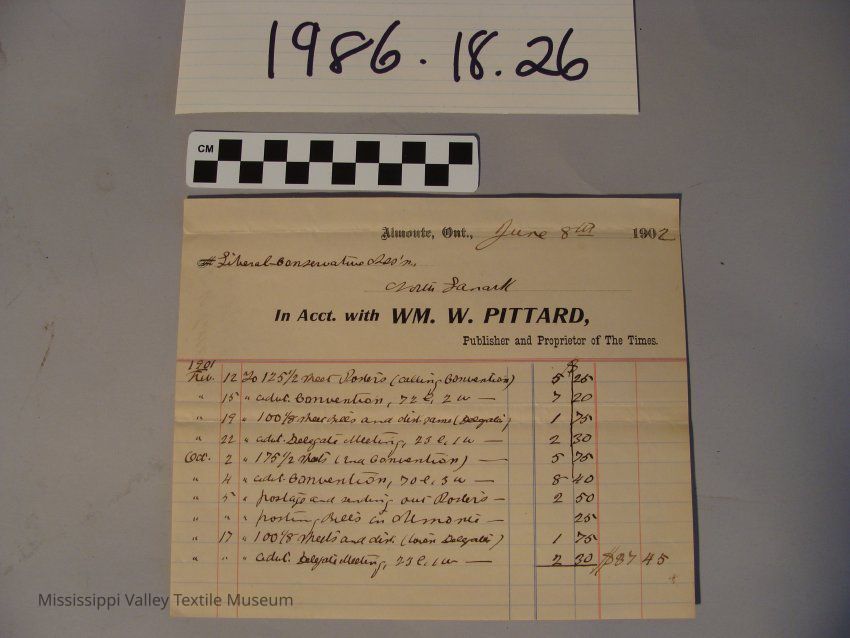 1986.18.26
CM
Almonte, Ont., June 8th 1902
Liberal-Conservative Ass'n,
North Lanark
In Acct. with WM. W. PITTARD,
Publisher and Proprietor of The Times.
1901 $
Feb. 12 To 125 1/2 sheet Posters (calling Convention) 5 25
" 15 " advt. Convention, 72 l, 2 w — 7 20
" 19 " 100 1/8 sheet Bills and dist. same (Delegate) 1 75
" 22 " advt. Delegate Meeting, 23 l, 1 w — 2 30
Oct. 2 " 175 1/2 sheets (2nd Convention) — 5 75
" 4 " advt. Convention, 70 l, 3 w — 8 40
" 5 " postage and sending out Posters — 2 50
" " " posting Bills in Almonte — 25
" 17 " 100 1/8 sheets and dist. (town Delegate) 1 75
" " " advt. Delegate Meeting, 23 l, 1 w — 2 30 $37 45
Mississippi Valley Textile Museum